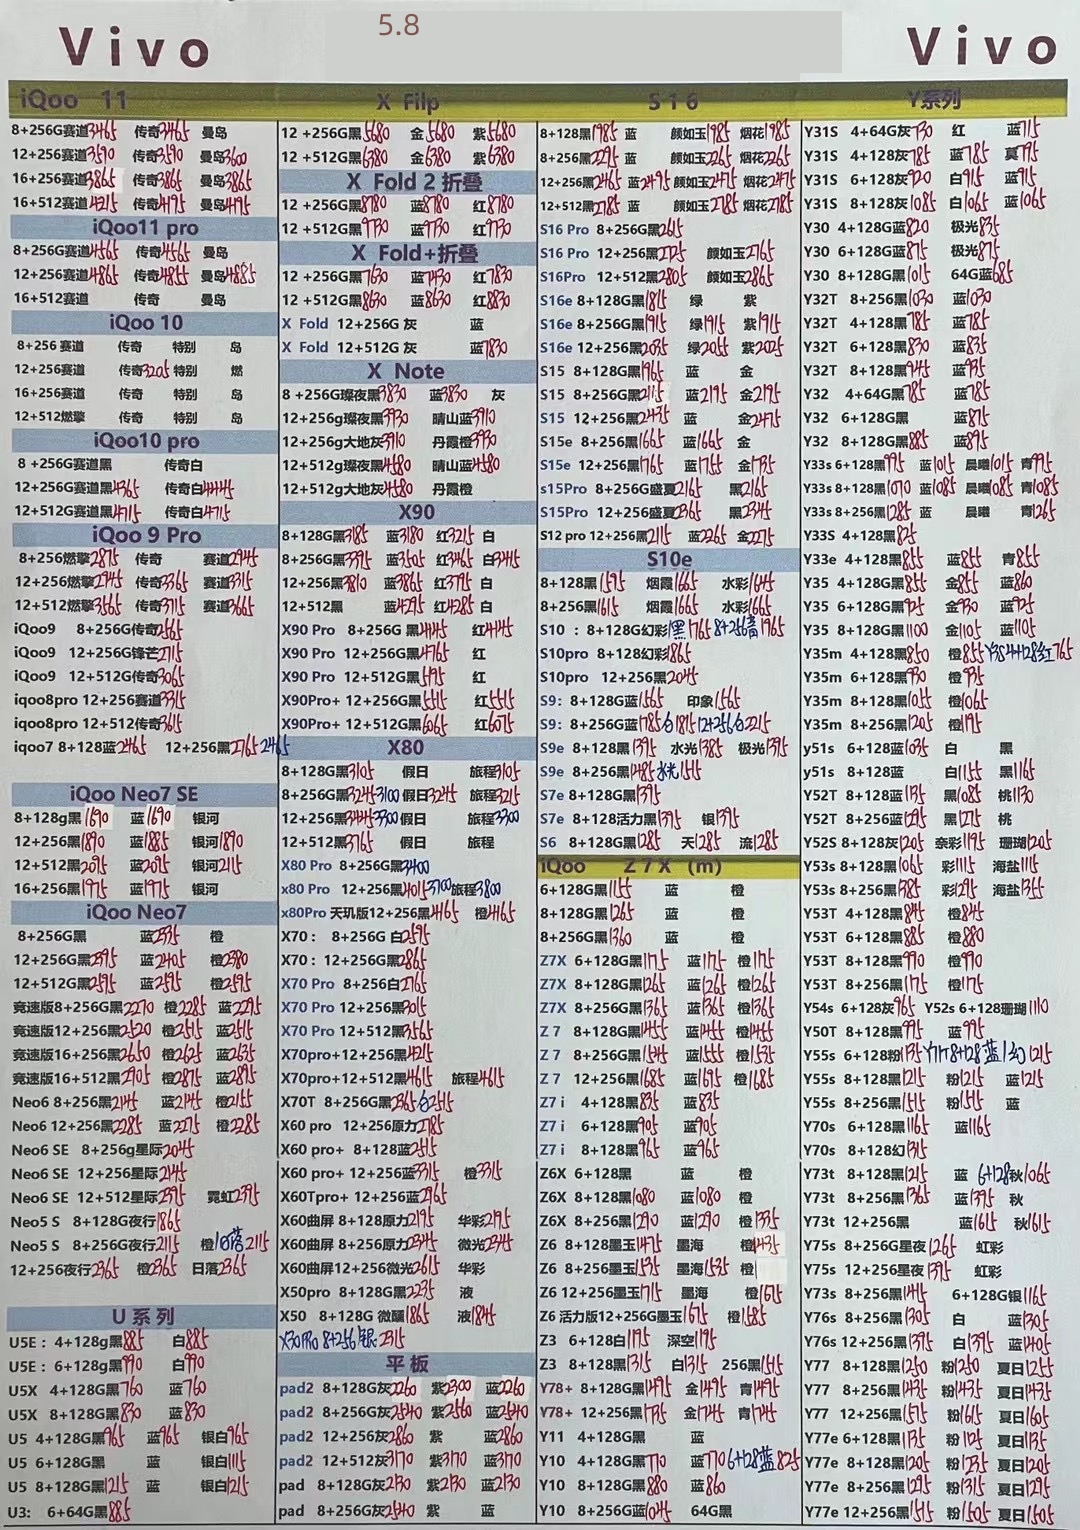 5.8
Vivo
Vivo
iQoo 11
8+256G赛道3465 传奇3465 曼岛
12+256赛道3590 传奇3590 曼岛3600
16+256赛道3865 传奇3865 曼岛3865
16+512赛道4215 传奇4195 曼岛4195
iQoo11 pro
8+256G赛道4565 传奇4565 曼岛
12+256赛道4865 传奇4855 曼岛4885
16+512赛道 传奇 曼岛
iQoo 10
8+256 赛道 传奇 特别 岛
12+256赛道 传奇3205 特别 燃
16+256赛道 传奇 特别 岛
12+512燃擎 传奇 特别 岛
iQoo10 pro
8 +256G赛道黑 传奇白
12+256G赛道黑4365 传奇白4445
12+512G赛道黑4715 传奇白4715
iQoo 9 Pro
8+256燃擎2875 传奇 赛道2945
12+256燃擎2945 传奇3365 赛道3315
12+512燃擎3565 传奇3715 赛道3665
iQoo9 8+256G传奇2565
iQoo9 12+256G锋芒2715
iQoo9 12+512G传奇3065
iqoo8pro 12+256赛道3315
iqoo8pro 12+512传奇3615
iqoo7 8+128蓝2465 12+256黑2765 2465
iQoo Neo7 SE
8+128g黑1690 蓝1690 银河
12+256黑1890 蓝1885 银河1890
12+512黑2095 蓝2095 银河2115
16+256黑1975 蓝1975 银河
iQoo Neo7
8+256G黑 蓝2335 橙
12+256G黑2395 蓝2405 橙2380
12+512G黑2595 蓝2595 橙2595
竞速版8+256G黑2270 橙2285 蓝2295
竞速版12+256黑2520 橙2515 蓝2515
竞速版16+256黑2650 橙2625 蓝2635
竞速版16+512黑2905 橙2875 蓝2895
Neo6 8+256黑2145 蓝2145 橙2155
Neo6 12+256黑2285 蓝2275 橙2285
Neo6 SE 8+256g星际2045
Neo6 SE 12+256星际2145
Neo6 SE 12+512星际2395 霓虹2395
Neo5 S 8+128G夜行1865
Neo5 S 8+256G夜行2115 橙 2115
12+256夜行2365 橙2365 日落2365
U系列
U5E： 4+128g黑885 白885
U5E： 6+128g黑990 白990
U5X 4+128G黑760 蓝760
U5X 8+128G黑830 蓝830
U5 4+128G黑965 蓝965 银白965
U5 6+128G黑 蓝 银白1115
U5 8+128G黑1215 蓝 银白1215
U3: 6+64G黑885
X Filp
12 +256G黑5680 金5680 紫5680
12 +512G黑6380 金6380 紫6380
X Fold 2 折叠
12 +256G黑8780 蓝8780 红8780
12 +512G黑9730 蓝9730 红9730
X Fold+折叠
12 +256G黑7630 蓝7430 红7830
12 +512G黑8630 蓝8630 红8830
X Fold 12+256G 灰 蓝
X Fold 12+512G 灰 蓝7830
X Note
8 +256G璨夜黑3830 蓝3830 灰
12+256g璨夜黑3930 晴山蓝3910
12+256g大地灰3910 丹霞橙3930
12+512g璨夜黑4580 晴山蓝4580
12+512g大地灰4580 丹霞橙
X90
8+128G黑3185 蓝3180 红3215 白
8+256G黑3395 蓝3505 红3465 白3415
12+256黑3810 蓝3865 红3795 白
12+512黑 蓝4295 红4285 白
X90 Pro 8+256G 黑4445 红4445
X90 Pro 12+256G黑4765 红
X90 Pro 12+512G黑5195 红
X90Pro+ 12+256G黑5515 红5515
X90Pro+ 12+512G黑6065 红6075
X80
8+128G黑3105 假日 旅程3105
8+256G黑3245 3100 假日3245 旅程3215
12+256黑3445 3300 假日 旅程3300
12+512黑 假日 旅程
X80 Pro 8+256G黑3400
x80 Pro 12+256黑4015 3700 旅程3800
x80Pro 天玑版12+256黑4165 橙4165
X70： 8+256G 白2595
X70： 12+256G黑2865
X70 Pro 8+256白2765
X70 Pro 12+256黑3015
X70 Pro 12+512黑3565
X70pro+12+256黑4215
X70pro+12+512黑4615 旅程4615
X70T 8+256G黑2365 白2515
X60 pro 12+256原力2785
X60 pro+ 8+128蓝2515
X60 pro+12+256蓝3315 橙3315
X60Tpro+ 12+256蓝2965
X60曲屏 8+128原力2195 华彩2195
X60曲屏 8+256原力2345 微光2345
X60曲屏12+256微光2615 华彩
X50pro 8+128G黑2235 液
X50 8+128G 微醺1865 液1845
X30Pro 8+256银2315
平板
pad2 8+128G灰2260 紫2300 蓝2260
pad2 8+256G灰2540 紫2560 蓝2540
pad2 12+256灰2860 紫 蓝2860
pad2 12+512灰3170 紫3170 蓝3170
pad 8+128G灰2130 紫2130 蓝2130
pad 8+256G灰2340 紫 蓝
S16
8+128黑1985 蓝 颜如玉1985 烟花1985
8+256黑2295 蓝 颜如玉2265 烟花2265
12+256黑2465 蓝2495 颜如玉2475 烟花2475
12+512黑2785 蓝 颜如玉2785 烟花2785
S16 Pro 8+256G黑2615
S16 Pro 12+256黑2725 颜如玉2765
S16Pro 12+512黑2805 颜如玉2865
S16e 8+128G黑1815 绿 紫
S16e 8+256G黑1915 绿1915 紫1915
S16e 12+256黑2035 绿2055 紫2025
S15 8+128G黑1965 蓝 金
S15 8+256G黑2115 蓝2195 金2195
S15 12+256黑2435 蓝 金2475
S15e 8+256黑1665 蓝1665 金
S15e 12+256黑1765 蓝1755 金1735
s15Pro 8+256G盛夏2165 黑2165
S15Pro 12+256盛夏2365 黑2345
S12 pro 12+256黑2115 蓝2265 金2275
S10e
8+128黑1595 烟霞1665 水彩1645
8+256黑1615 烟霞1665 水彩1665
S10 ：8+128G幻彩黑1765 8+256 1965
S10pro 8+128幻彩1865
S10pro 12+256黑2045
S9: 8+128G蓝1565 印象1565
S9: 8+256G蓝1785 白1815 12+256白2215
S9e 8+128黑1395 水光1385 极光1395
S9e 8+256黑1485 水光1515
S7e 8+128G黑1395
S7e 8+128活力黑1395 银1395
S6 8+128G黑1285 天1285 流1285
iQoo Z7X (m)
6+128G黑1155 蓝 橙
8+128G黑1265 蓝 橙
8+256G黑1360 蓝 橙
Z7X 6+128G黑1175 蓝1175 橙1175
Z7X 8+128G黑1265 蓝1265 橙1265
Z7X 8+256G黑1365 蓝1365 橙1365
Z 7 8+128G黑1455 蓝1455 橙1455
Z 7 8+256G黑1545 蓝1555 橙1535
Z 7 12+256黑1685 蓝1695 橙1685
Z7 i 4+128黑835 蓝835
Z7 i 6+128黑905 蓝905
Z7 i 8+128黑965 蓝965
Z6X 6+128黑 蓝 橙
Z6X 8+128黑1080 蓝1080 橙
Z6X 8+256黑1290 蓝1290 橙1335
Z6 8+128墨玉1475 墨海 橙1435
Z6 8+256墨玉1535 墨海1535 橙
Z6 12+256墨玉1715 墨海 橙1675
Z6 活力版12+256G墨玉1675 橙1685
Z3 6+128白1195 深空1195
Z3 8+128黑1315 白1315 256黑1515
Y78+ 8+128G黑1495 金1495 青1495
Y78+ 12+256黑1735 金1745 青1745
Y11 4+128G黑 蓝
Y10 4+128G黑770 蓝770 6+128蓝825
Y10 8+128G黑880 蓝860
Y10 8+256G蓝1045 64G黑
Y系列
Y31S 4+64G灰730 红 蓝715
Y31S 4+128灰785 蓝785 莫795
Y31S 6+128灰920 白915 蓝915
Y31S 8+128灰1085 白1065 蓝1065
Y30 4+128G蓝820 极光835
Y30 6+128G蓝875 极光875
Y30 8+128G黑1015 64G蓝685
Y32T 8+256黑1030 蓝1030
Y32T 4+128黑785 蓝785
Y32T 6+128黑830 蓝835
Y32T 8+128黑945 蓝935
Y32 4+64G黑785 蓝785
Y32 6+128G黑 蓝875
Y32 8+128G黑885 蓝895
Y33s 6+128黑995 蓝1015 晨曦1015 青995
Y33s 8+128黑1070 蓝1085 晨曦1085 青1085
Y33s 8+256黑1285 蓝 晨曦 青1265
Y33S 4+128黑825
Y33e 4+128黑855 蓝855 青855
Y35 4+128G黑855 金855 蓝860
Y35 6+128G黑925 金930 蓝925
Y35 8+128G黑1100 金1105 蓝1105
Y35m 4+128黑850 橙855 Y35 4+128红765
Y35m 6+128黑930 橙935
Y35m 8+128黑1055 橙1065
Y35m 8+256黑1205 橙1195
y51s 6+128蓝1035 白 黑
y51s 8+128蓝 白1155 黑1165
Y52T 8+128蓝1135 黑1085 桃1130
Y52T 8+256蓝1295 黑1275 桃
Y52S 8+128灰1205 奈彩1195 珊瑚1205
Y53s 8+128黑1065 彩1115 海盐1115
Y53s 8+256黑1385 彩1295 海盐1365
Y53T 4+128黑845 橙845
Y53T 6+128黑885 橙880
Y53T 8+128黑990 橙990
Y53T 8+256黑1175 橙1175
Y54s 6+128灰965 Y52s 6+128珊瑚1110
Y50T 8+128黑995 蓝995
Y55s 6+128粉1135 Y71T 8+128蓝/幻1215
Y55s 8+128黑1215 粉1215 蓝1215
Y55s 8+256黑1515 粉1515 蓝
Y70s 6+128黑1165 蓝1165
Y70s 8+128幻1315
Y73t 8+128黑1215 蓝 6+128秋1065
Y73t 8+256黑1365 蓝1395 秋
Y73t 12+256黑 蓝1615 秋1615
Y75s 8+256G星夜1265 虹彩
Y75s 12+256星夜1395 虹彩
Y73s 8+256黑1445 6+128G银1165
Y76s 8+256黑1305 白 蓝1305
Y76s 12+256黑1395 白1395 蓝1405
Y77 8+128黑1250 粉1250 夏日1255
Y77 8+256黑1435 粉1435 夏日1435
Y77 12+256黑1575 粉1615 夏日1605
Y77e 6+128黑1135 粉1125 夏日1135
Y77e 8+128黑1205 粉1235 夏日1205
Y77e 8+256黑1295 粉1315 夏日1295
Y77e 12+256黑1515 粉1505 夏日1505